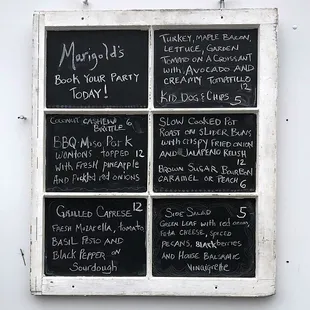 Marigold's
Book Your Party
Today!
Turkey, Maple Bacon,
Lettuce, Garden
Tomato on a Croissant
with Avocado and
creamy Tomatillo
12
Kid Dog & Chips 5
Coconut Cashew 6
Brittle
BBQ Miso Pork
Wontons topped 12
with Fresh pineapple
and Pickled red onions
Slow Cooked Pot
Roast on Slider Buns
with crispy Fried onion
and Jalapeno Relish
12
Brown Sugar Bourbon
Caramel or Peach
6
Grilled Caprese 12
Fresh Mozarella, tomato,
Basil Pesto and
Black Pepper on
Sourdough
Side Salad 5
Green Leaf with red onion
Feta Cheese, spiced
pecans, Blackberries
and House Balsamic
Vinaigrette